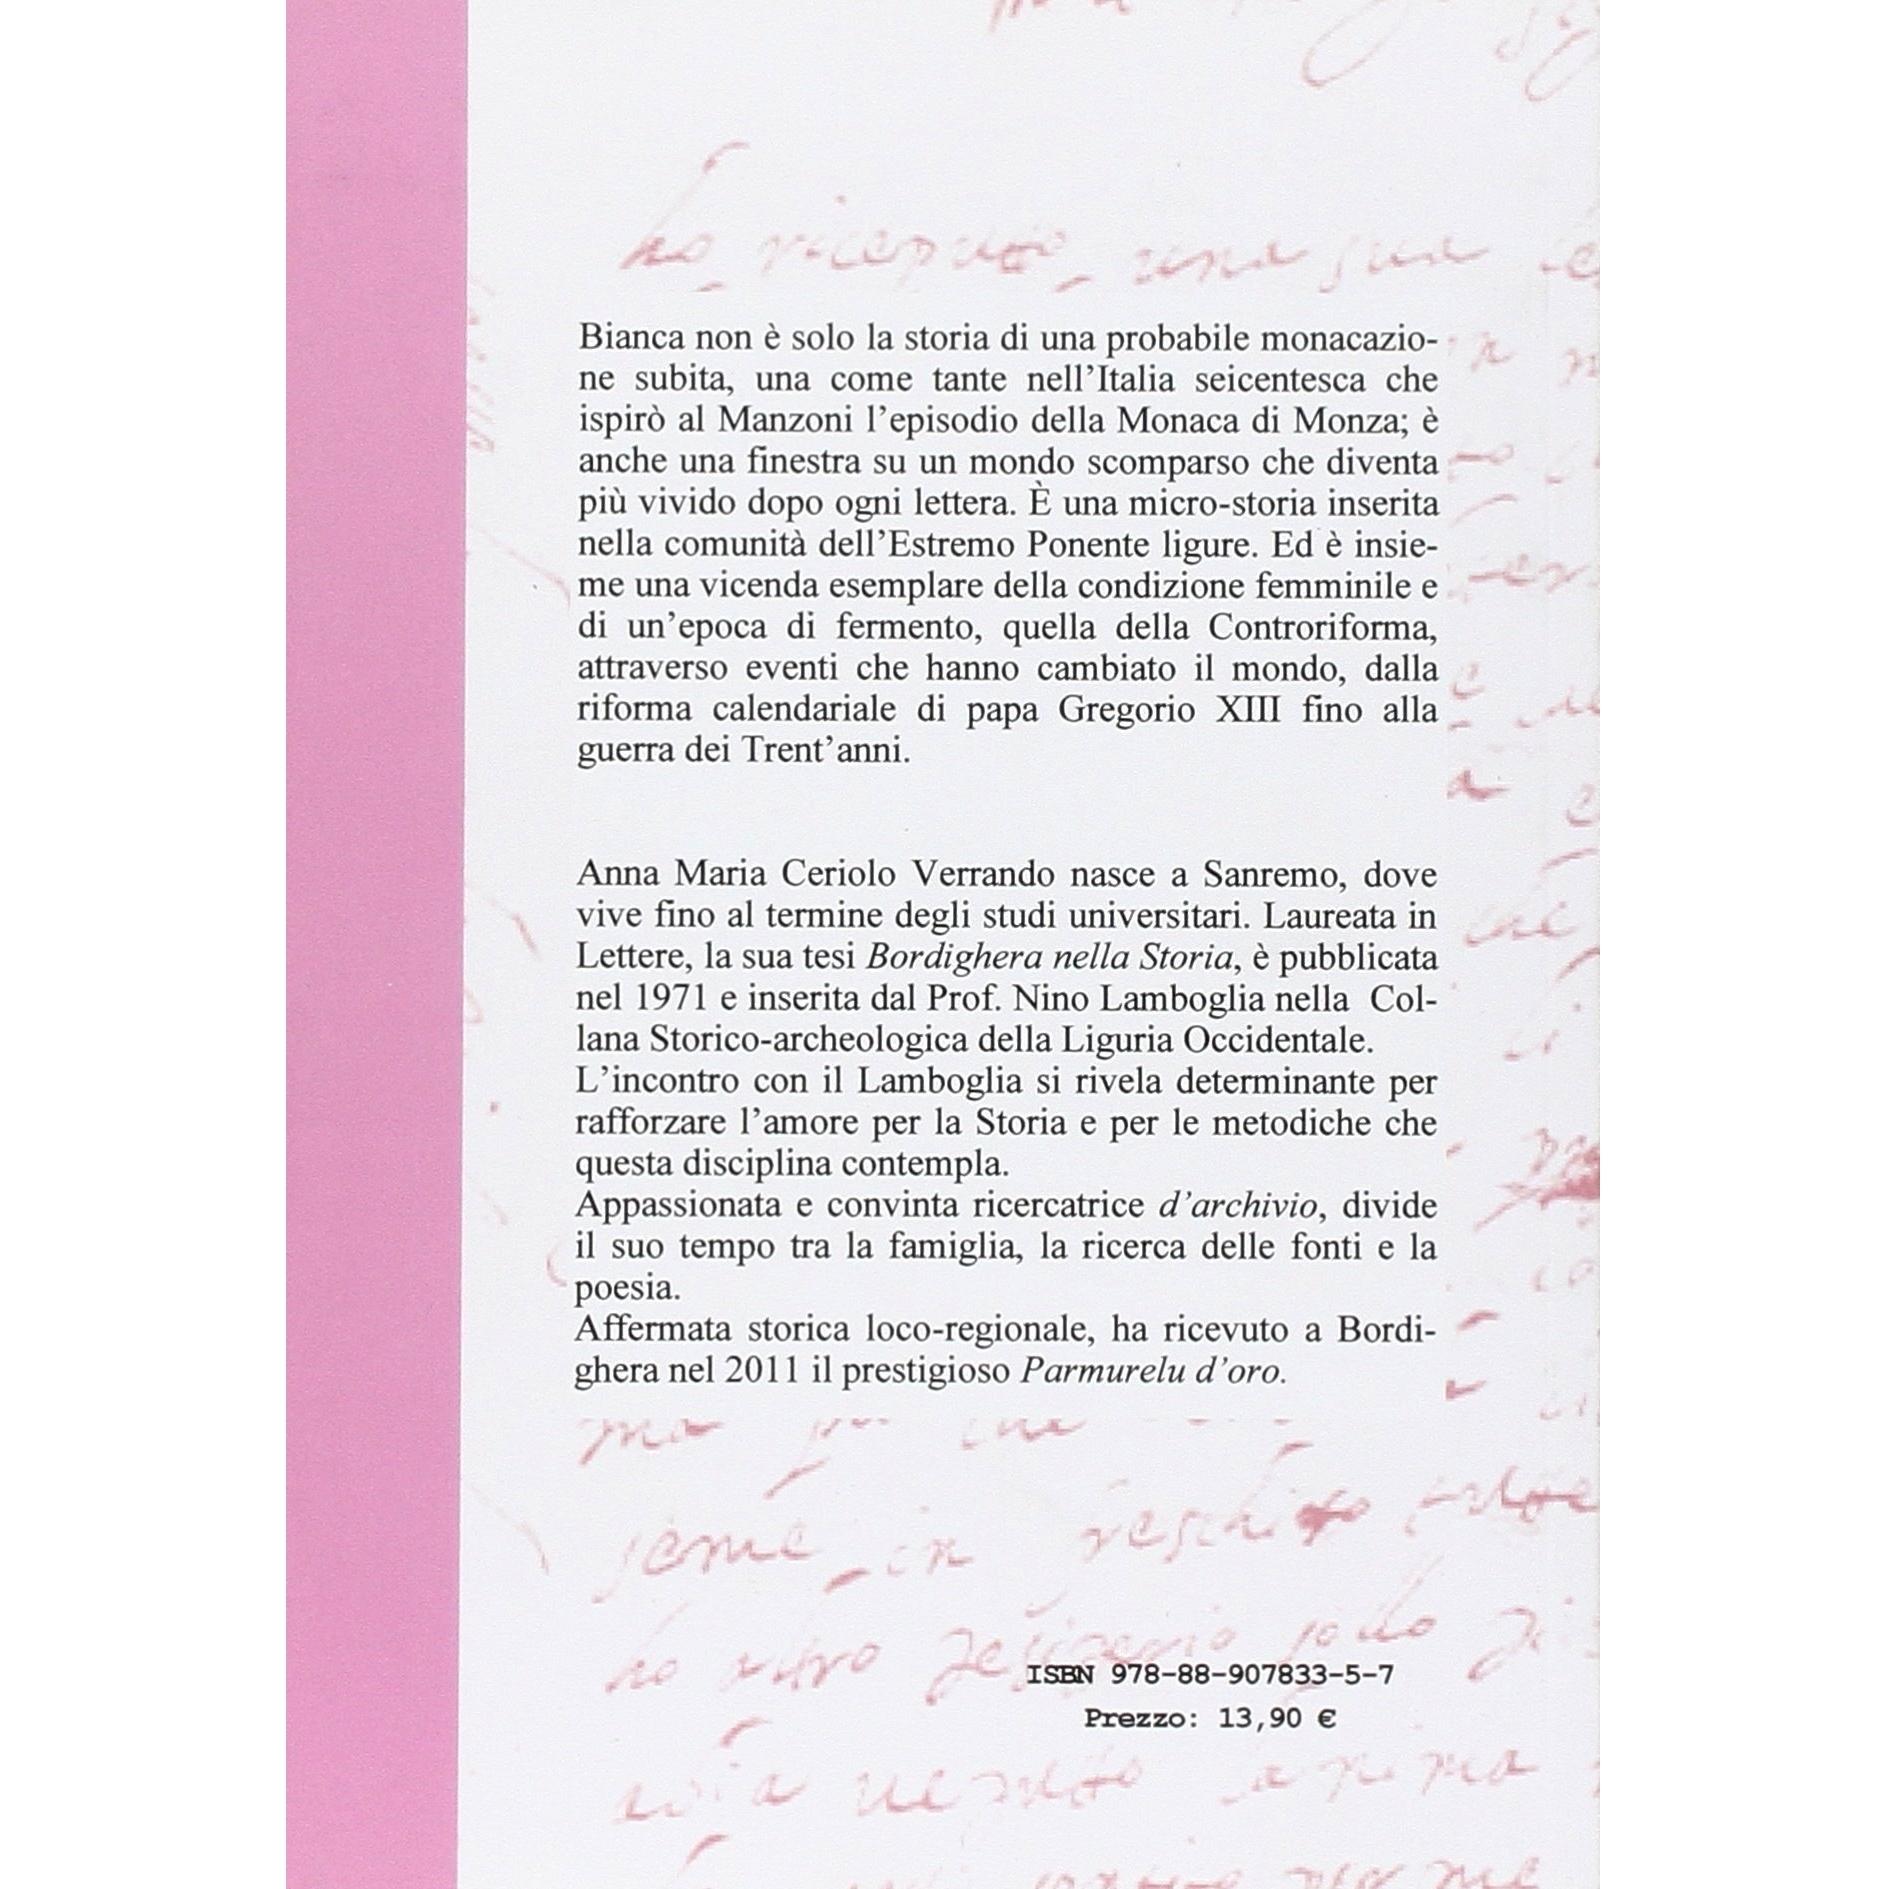 ho ricevuto una sua
Bianca non è solo la storia di una probabile monacazio-
ne subita, una come tante nell’Italia seicentesca che
ispirò al Manzoni l’episodio della Monaca di Monza; è
anche una finestra su un mondo scomparso che diventa
più vivido dopo ogni lettera. È una micro-storia inserita
nella comunità dell’Estremo Ponente ligure. Ed è insie-
me una vicenda esemplare della condizione femminile e
di un’epoca di fermento, quella della Controriforma,
attraverso eventi che hanno cambiato il mondo, dalla
riforma calendariale di papa Gregorio XIII fino alla
guerra dei Trent’anni.
Anna Maria Ceriolo Verrando nasce a Sanremo, dove
vive fino al termine degli studi universitari. Laureata in
Lettere, la sua tesi Bordighera nella Storia, è pubblicata
nel 1971 e inserita dal Prof. Nino Lamboglia nella Col-
lana Storico-archeologica della Liguria Occidentale.
L’incontro con il Lamboglia si rivela determinante per
rafforzare l’amore per la Storia e per le metodiche che
questa disciplina contempla.
Appassionata e convinta ricercatrice d’archivio, divide
il suo tempo tra la famiglia, la ricerca delle fonti e la
poesia.
Affermata storica loco-regionale, ha ricevuto a Bordi-
ghera nel 2011 il prestigioso Parmurelu d’oro.
ISBN 978-88-907833-5-7
Prezzo: 13,90 €